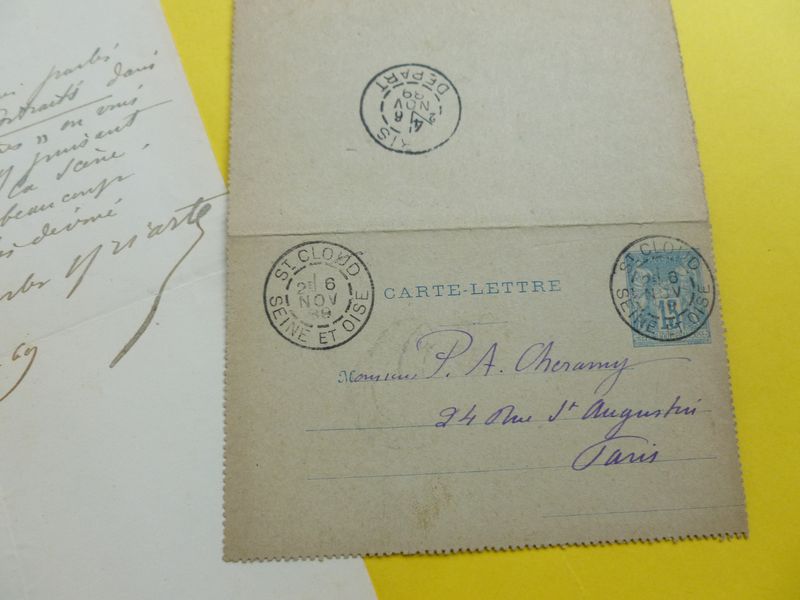 parlés
portraits dans
" on vous
y puisent
la scène,
beaucoup
deviné
Yriarte
69
DEPART
2E
4
6
NOV
89
ST CLOUD
2E 6
NOV
89
SEINE ET OISE
CARTE-LETTRE
ST CLOUD
2E 6
NOV
SEINE ET OISE
15
Monsieur P. A. Cheramy
24 Rue St Augustin
Paris